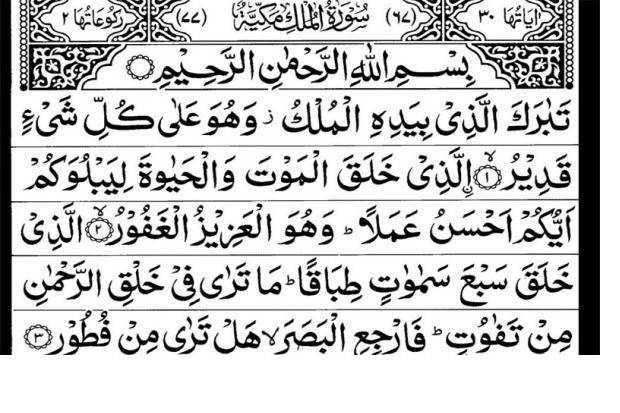 اٰیاتها ٣٠ (٦٧) سُوْرَةُ الْمُلْكِ مَكِّيَّةٌ (٧٧) رکوعاتها ٢
بِسْمِ اللّٰهِ الرَّحْمٰنِ الرَّحِیْمِ
تَبٰرَكَ الَّذِیْ بِیَدِهِ الْمُلْكُ ز وَهُوَ عَلٰی كُلِّ شَیْءٍ
قَدِیْرُ ۙ‏﴿١﴾ ۨالَّذِیْ خَلَقَ الْمَوْتَ وَالْحَیٰوةَ لِیَبْلُوَكُمْ
اَیُّكُمْ اَحْسَنُ عَمَلًا ؕ وَهُوَ الْعَزِیْزُ الْغَفُوْرُ ۙ﴿٢﴾ الَّذِیْ
خَلَقَ سَبْعَ سَمٰوٰتٍ طِبَاقًا ؕ مَا تَرٰی فِیْ خَلْقِ الرَّحْمٰنِ
مِنْ تَفٰوُتٍ ؕ فَارْجِعِ الْبَصَرَ ۙ هَلْ تَرٰی مِنْ فُطُوْرٍ ﴿٣﴾